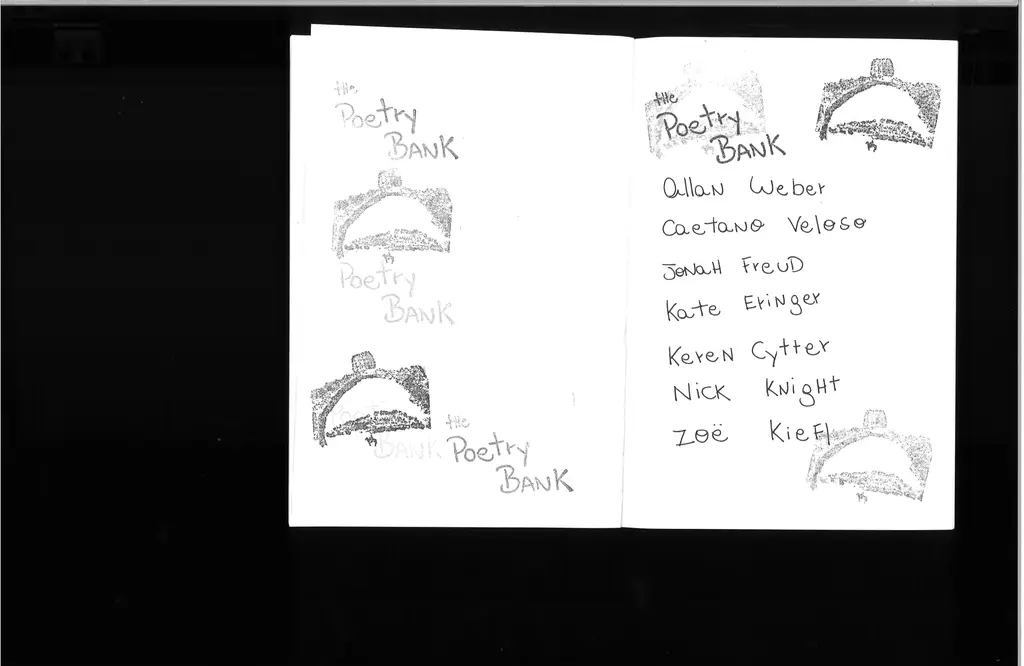 the
Poetry
BANK
Poetry
BANK
BANK
the
Poetry
BANK
the
Poetry
BANK
Allan Weber
Caetano Veloso
Jonah Freud
Kate Eringer
Keren Cytter
Nick Knight
Zoë Kiefl